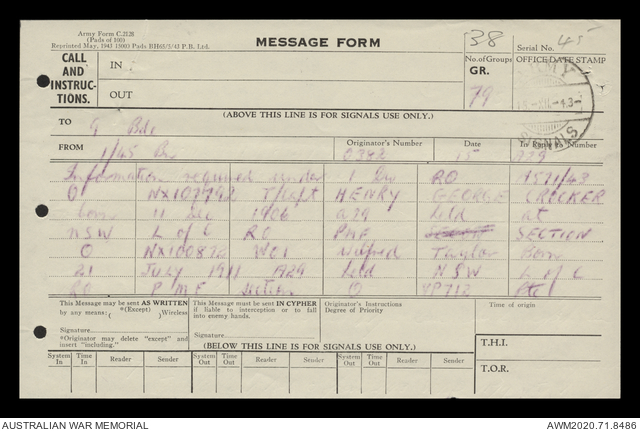 Army Form C.2128
(Pads of 100)
Reprinted May, 1943 15003 Pads BH65/5/43 P.B. Ltd.
MESSAGE FORM
38
Serial No. 45
CALL
AND
INSTRUC-
TIONS.
IN :
OUT
No. of Groups
GR.
79
OFFICE DATE STAMP
ARMY
SIGNALS
(ABOVE THIS LINE IS FOR SIGNALS USE ONLY.)
TO 9 Bde
FROM 1/45 Bn
Originator's Number
0342
Date
15
In Reply to Number
A29
Information required under 1 Div RO A571/43
O NX107792 T/Capt HENRY GEORGE CROCKER
born 11 Dec 1906 A29 held at
NSW L of C RO PMF SECTION
O NX100872 WO1 Wilfred Taylor Born
21 JULY 1911 A29 held NSW L of C
RO PMF Section O VP712 Ptc
This Message may be sent AS WRITTEN
by any means: { *(Except) } Wireless
Signature
*Originator may delete "except" and
insert "including."
This Message must be sent IN CYPHER
if liable to interception or to fall
into enemy hands.
Signature
Originator's Instructions
Degree of Priority
Time of origin
T.H.I.
T.O.R.
(BELOW THIS LINE IS FOR SIGNALS USE ONLY.)
System In Time In Reader Sender System Out Time Out Reader Sender System Out Time Out Reader Sender
AUSTRALIAN WAR MEMORIAL
AWM2020.71.8486